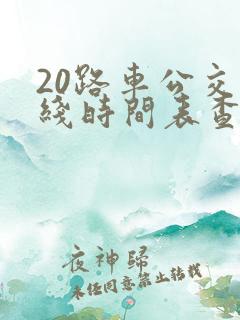 20路車公交
綫時間表查
夜神歸
未經同意禁止轉載